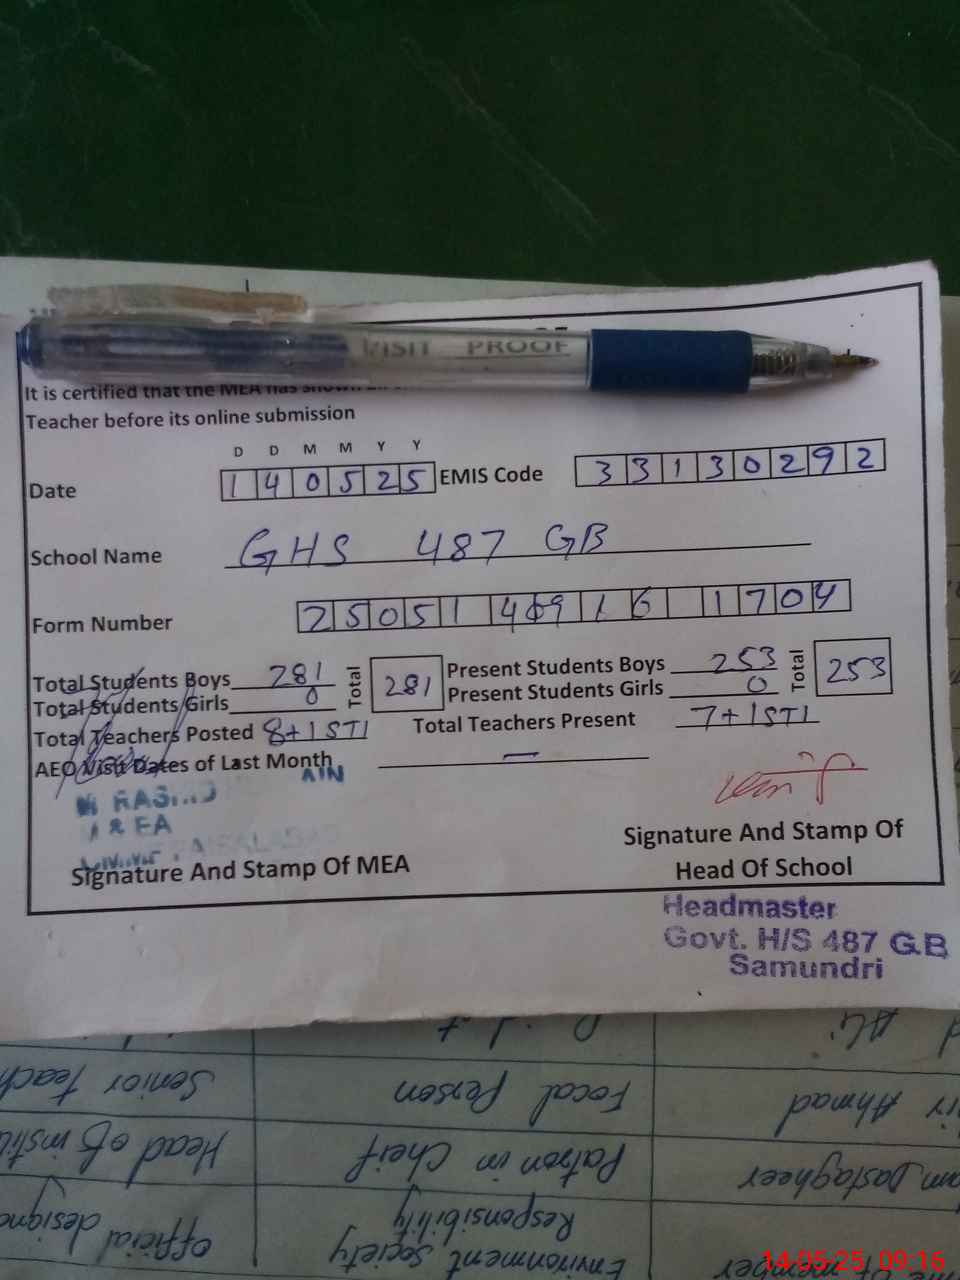 VISIT PROOF
It is certified that the MEA has shown
Teacher before its online submission
D D M M Y Y
Date 1 4 0 5 2 5 EMIS Code 3 3 1 3 0 2 9 2
School Name GHS 487 GB
Form Number 2 5 0 5 1 4 0 9 1 6 1 7 0 4
Total Students Boys 281 Total 281 Present Students Boys 253 Total 253
Total Students Girls 0 Present Students Girls 0
Total Teachers Posted 8+1 STI Total Teachers Present 7+1 STI
AEO Visit Dates of Last Month —
Signature And Stamp Of MEA
Signature And Stamp Of
Head Of School
Headmaster
Govt. H/S 487 G.B
Samundri
Ali
Senior Teach
Focal Person
Ahmad
Head of institu
Patron in Cheif
Dastagheer
official designa
Environment Society
Responsibility
14-05-25/ 09:16